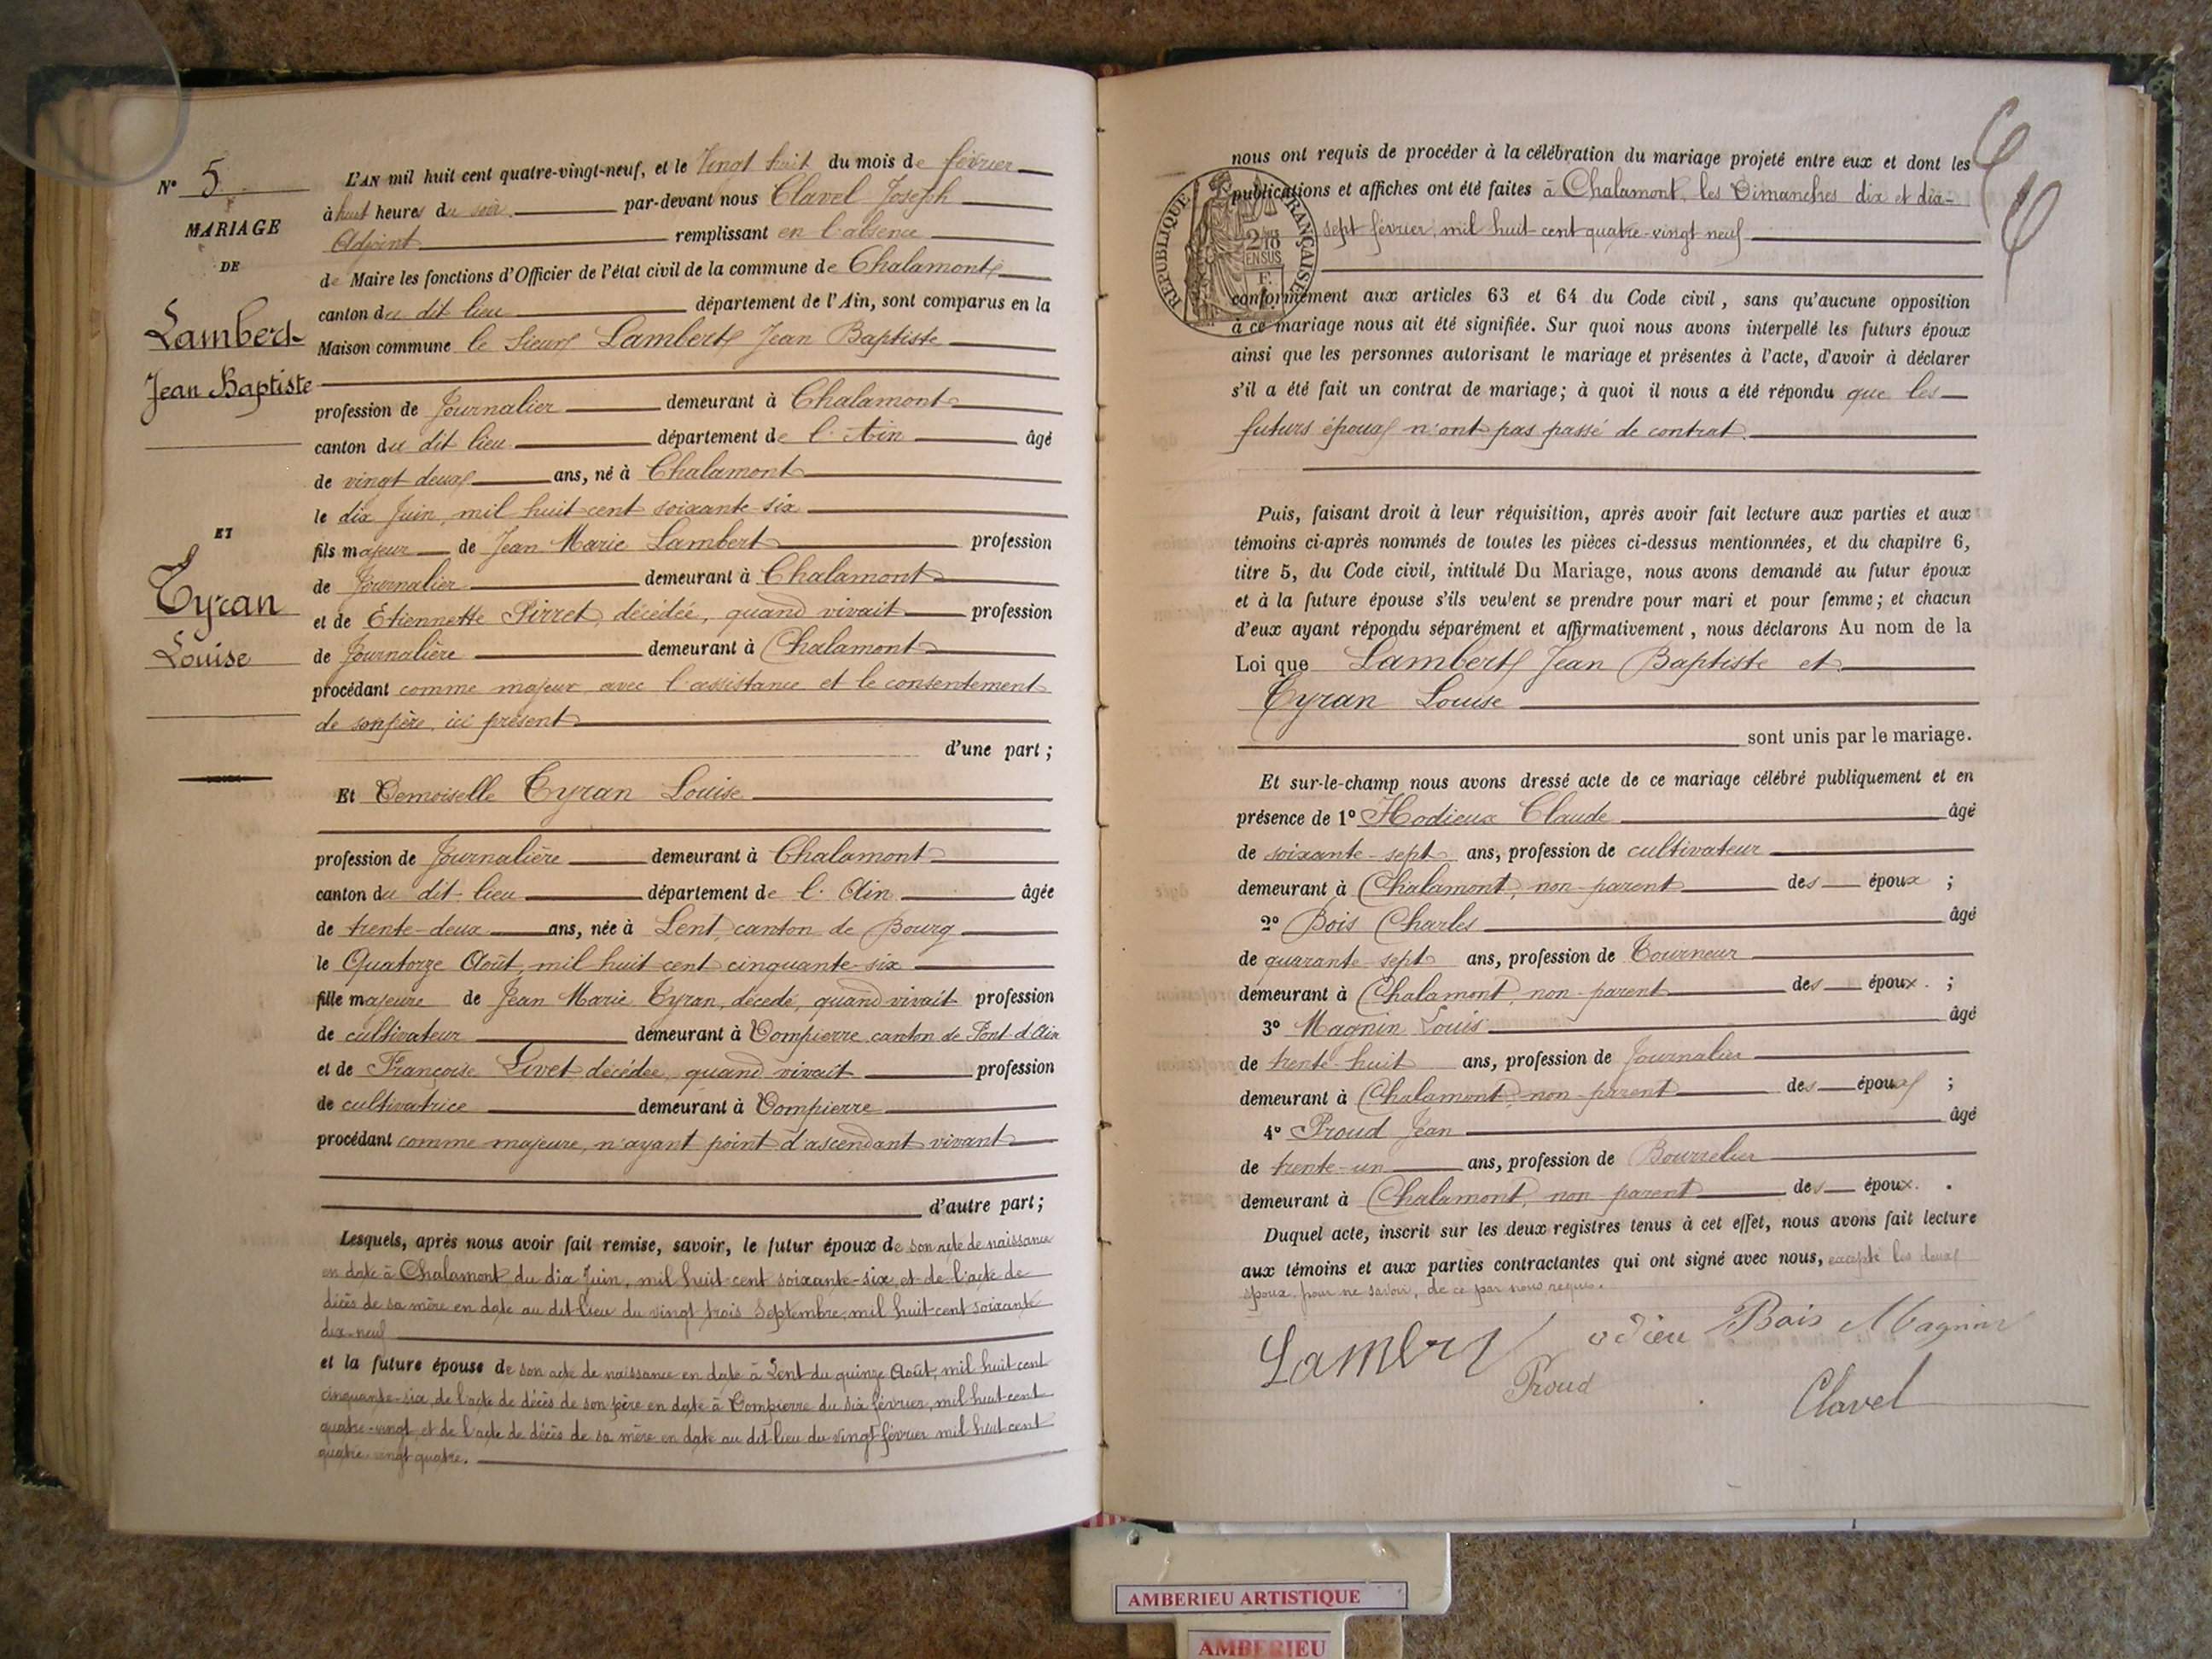 N° 5
MARIAGE
DE
Lambert
Jean Baptiste
ET
Tyran
Louise
L'AN mil huit cent quatre-vingt-neuf, et le Vingt huit du mois de février
à huit heures du soir. par-devant nous Clavel Joseph
Adjoint remplissant en l'absence
de Maire les fonctions d'Officier de l'état civil de la commune de Chalamont
canton du dit lieu département de l'Ain, sont comparus en la
Maison commune le Sieur Lambert Jean Baptiste
profession de Journalier demeurant à Chalamont
canton du dit lieu département de l'Ain âgé
de vingt deux ans, né à Chalamont
le dix Juin, mil huit cent soixante-six
fils majeur de Jean Marie Lambert profession
de Journalier demeurant à Chalamont
et de Étiennette Pirret, décédée, quand vivait profession
de Journalière demeurant à Chalamont
procédant comme majeur avec l'assistance et le consentement
de son père, ici présent
d'une part ;
Et Demoiselle Tyran Louise
profession de Journalière demeurant à Chalamont
canton du dit-lieu département de l'Ain âgée
de trente-deux ans, née à Lent, canton de Bourg
le Quatorze Août, mil huit cent cinquante-six
fille majeure de Jean Marie Tyran, décedé, quand vivait profession
de cultivateur demeurant à Dompierre canton de Pont d'Ain
et de Françoise Livet décédée, quand vivait profession
de cultivatrice demeurant à Dompierre
procédant comme majeure, n'ayant point d'ascendant vivant
d'autre part ;
Lesquels, après nous avoir fait remise, savoir, le futur époux de son acte de naissance
en date à Chalamont du dix Juin, mil huit-cent soixante-six, et de l'acte de
décès de sa mère en date au dit lieu du vingt trois Septembre, mil huit-cent soixante
dix-neuf
et la future épouse de son acte de naissance en date à Lent du quinze Août, mil huit cent
cinquante-six, de l'acte de décès de son père en date à Dompierre du six février, mil huit-cent
quatre-vingt et de l'acte de décès de sa mère en date au dit lieu du vingt février mil huit-cent
quatre-vingt quatre.
nous ont requis de procéder à la célébration du mariage projeté entre eux et dont les
publications et affiches ont été faites à Chalamont, les Dimanches dix et dix-
sept février, mil huit-cent quatre-vingt neuf
REPUBLIQUE FRANÇAISE
2/10
EN SUS
F.
conformément aux articles 63 et 64 du Code civil, sans qu'aucune opposition
à ce mariage nous ait été signifiée. Sur quoi nous avons interpellé les futurs époux
ainsi que les personnes autorisant le mariage et présentes à l'acte, d'avoir à déclarer
s'il a été fait un contrat de mariage; à quoi il nous a été répondu que les
futurs époux n'ont pas passé de contrat.
Puis, faisant droit à leur réquisition, après avoir fait lecture aux parties et aux
témoins ci-après nommés de toutes les pièces ci-dessus mentionnées, et du chapitre 6,
titre 5, du Code civil, intitulé Du Mariage, nous avons demandé au futur époux
et à la future épouse s'ils veulent se prendre pour mari et pour femme; et chacun
d'eux ayant répondu séparément et affirmativement, nous déclarons Au nom de la
Loi que Lambert Jean Baptiste et
Tyran Louise
sont unis par le mariage.
Et sur-le-champ nous avons dressé acte de ce mariage célébré publiquement et en
présence de 1° Hodieux Claude âgé
de soixante-sept ans, profession de cultivateur
demeurant à Chalamont, non-parent des époux ;
2° Bois Charles âgé
de quarante-sept ans, profession de Tourneur
demeurant à Chalamont, non-parent des époux. ;
3° Magnin Louis âgé
de trente-huit ans, profession de Journalier
demeurant à Chalamont, non-parent des époux ;
4° Proud Jean âgé
de trente-un ans, profession de Bourrelier
demeurant à Chalamont, non parent des époux. .
Duquel acte, inscrit sur les deux registres tenus à cet effet, nous avons fait lecture
aux témoins et aux parties contractantes qui ont signé avec nous, excepté les deux
époux pour ne savoir, de ce par nous requis.
Bois Magnin
Proud
Clavel
AMBERIEU ARTISTIQUE
AMBERIEU